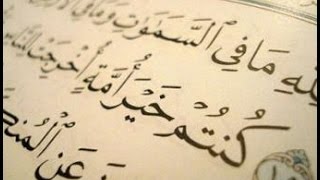 مَا فِي ٱلسَّمَٰوَٰتِ وَمَا فِي
كُنتُمْ خَيْرَ أُمَّةٍ أُخْرِجَتْ لِلنَّاسِ
عَنِ ٱلْمُنكَ